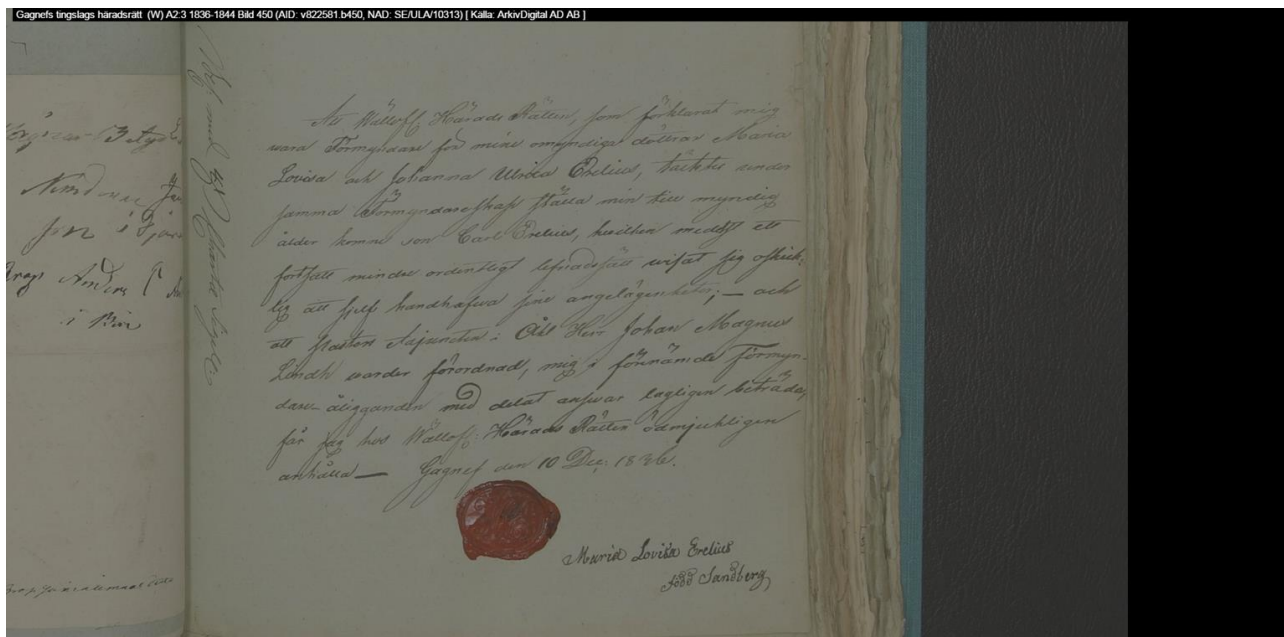 Gagnefs tingslags häradsrätt (W) A2:3 1836-1844 Bild 450 (AID: v822581.b450, NAD: SE/ULA/10313) [ Källa: ArkivDigital AD AB ]
Att Wällofl. Härads Rätten, som förklarat mig
vara Förmyndare för mine omyndige döttrar Maria
Lovisa och Johanna Ulrica Erelius, täcktes under
samma Förmyndareskap ställa min till myndig
ålder komne son Carl Erelius, hvilken medelst ett
fortsatt mindre ordentligt lefnadssätt wisat sig oskick-
lig att sjelf handhafwa sine angelägenheter; — och
att Pastors Adjuncten i Åhl Herr Johan Magnus
Lindh warder förordnad, mig i förenämde Förmyn-
dare-åligganden med delat answar lagligen beträda,
får jag hos Wällofl. Härads Rätten ödmjukligen
anhålla — Gagnef den 10 Dec. 1836.
Maria Lovisa Erelius
född Sandberg
Nämdeman
son i
Anders
i